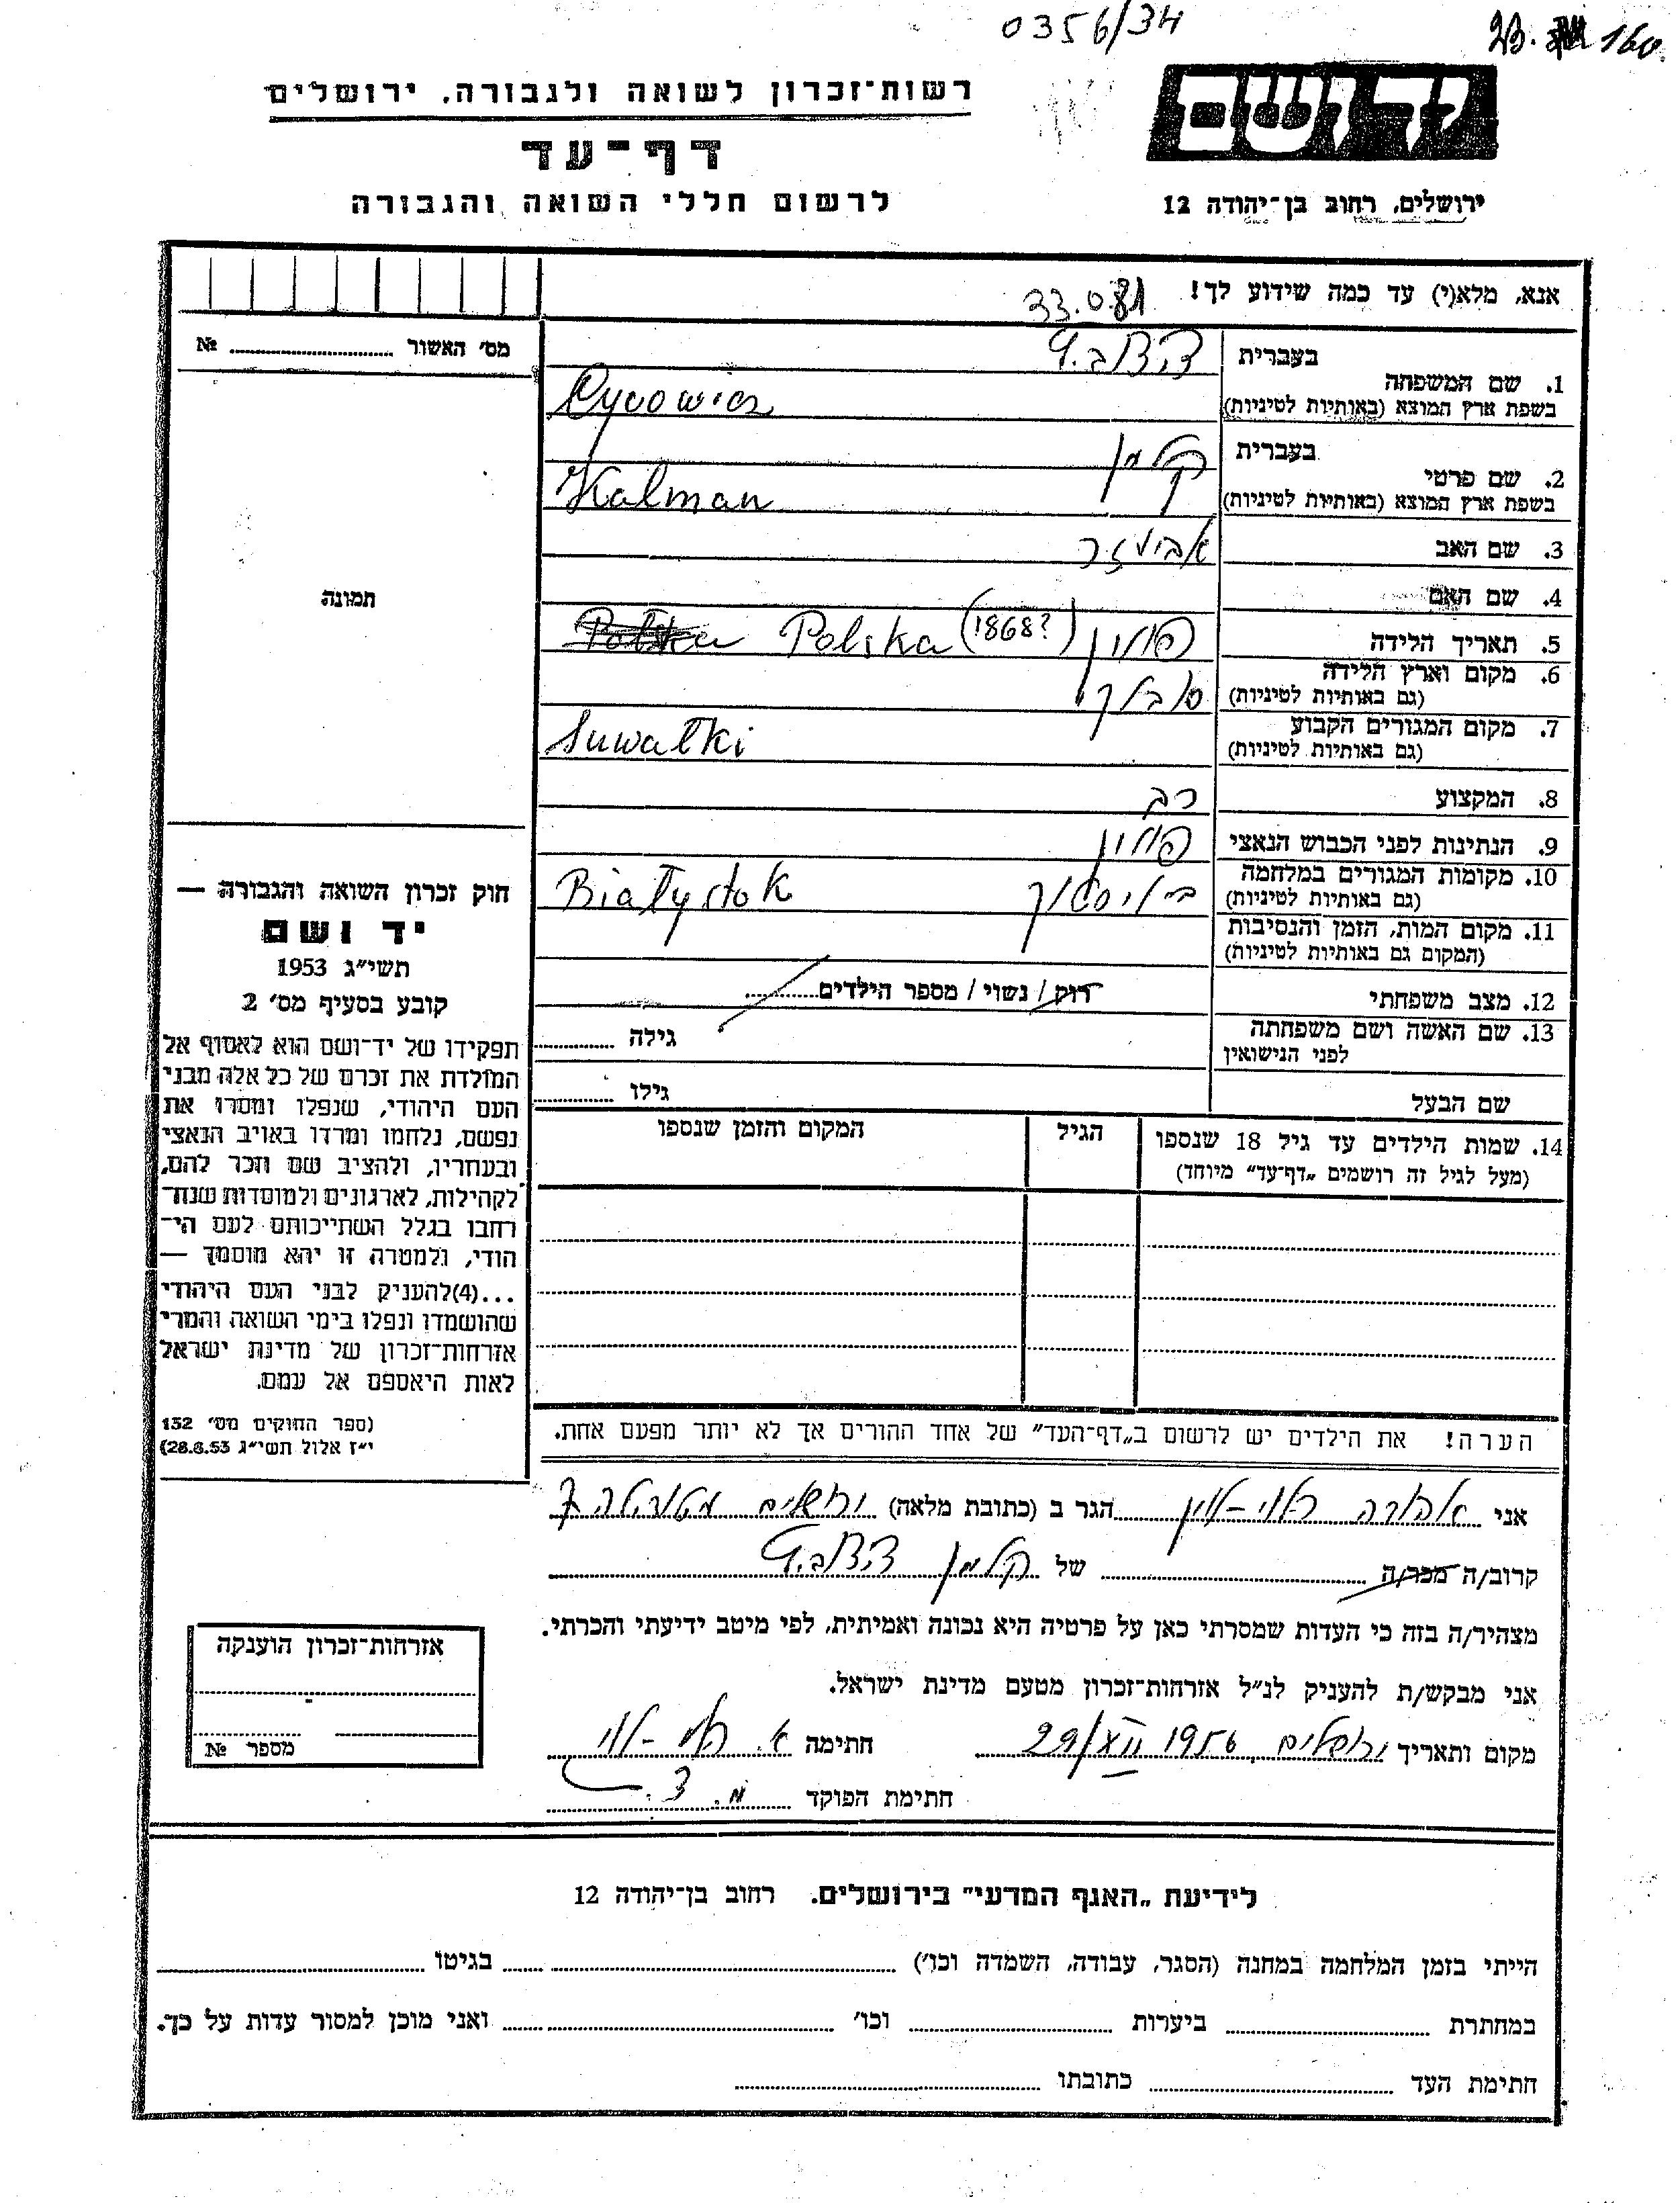 0356/34
23. 160
רשות־זכרון לשואה ולגבורה, ירושלים
יד ושם
דף־עד
לרשום חללי השואה והגבורה
ירושלים, רחוב בן־יהודה 12
אנא, מלא(י) עד כמה שידוע לך!
33.081
מס׳ האשור № 
תמונה
בעברית
1. שם המשפחה
בשפת ארץ המוצא (באותיות לטיניות)
בעברית קלמן
2. שם פרטי
בשפת ארץ המוצא (באותיות לטיניות) Kalman
3. שם האב אביעזר
4. שם האם
5. תאריך הלידה פולין (1868?) Polska
6. מקום וארץ הלידה
(גם באותיות לטיניות) סובלק
7. מקום המגורים הקבוע
(גם באותיות לטיניות) Suwałki
8. המקצוע רב
9. הנתינות לפני הכבוש הנאצי פולין
10. מקומות המגורים במלחמה
(גם באותיות לטיניות) ביליסטוק Białystok
11. מקום המות, הזמן והנסיבות
(המקום גם באותיות לטיניות)
12. מצב משפחתי רוק / נשוי / מספר הילדים
13. שם האשה ושם משפחתה
לפני הנישואין גילה
שם הבעל גילו
14. שמות הילדים עד גיל 18 שנספו הגיל המקום והזמן שנספו
(מעל לגיל זה רושמים „דף־עד״ מיוחד)
חוק זכרון השואה והגבורה —
יד ושם
תשי״ג 1953
קובע בסעיף מס׳ 2
תפקידו של יד־ושם הוא לאסוף אל
המולדת את זכרם של כל אלה מבני
העם היהודי, שנפלו ומסרו את
נפשם, נלחמו ומרדו באויב הנאצי
ובעוזריו, ולהציב שם וזכר להם,
לקהילות, לארגונים ולמוסדות שנח־
רבו בגלל השתייכותם לעם הי־
הודי, ולמטרה זו יהא מוסמך —
...(4)להעניק לבני העם היהודי
שהושמדו ונפלו בימי השואה והמרי
אזרחות־זכרון של מדינת ישראל
לאות היאספם אל עמם.
(ספר החוקים מס׳ 132
י״ז אלול תשי״ג 28.8.53)
הערה! את הילדים יש לרשום ב„דף־העד״ של אחד ההורים אך לא יותר מפעם אחת.
אני אהודה הגר ב (כתובת מלאה) ירושלים 7
קרוב/ה מכר/ה של קלמן
מצהיר/ה בזה כי העדות שמסרתי כאן על פרטיה היא נכונה ואמיתית, לפי מיטב ידיעתי והכרתי.
אני מבקש/ת להעניק לנ״ל אזרחות־זכרון מטעם מדינת ישראל.
מקום ותאריך ירושלים, 1956 29/XII חתימה
חתימת הפוקד
אזרחות־זכרון הוענקה
מספר №
לידיעת „האגף המדעי״ בירושלים. רחוב בן־יהודה 12
הייתי בזמן המלחמה במחנה (הסגר, עבודה, השמדה וכו׳) בגיטו
במחתרת ביערות וכו׳ ואני מוכן למסור עדות על כך.
חתימת העד כתובתו